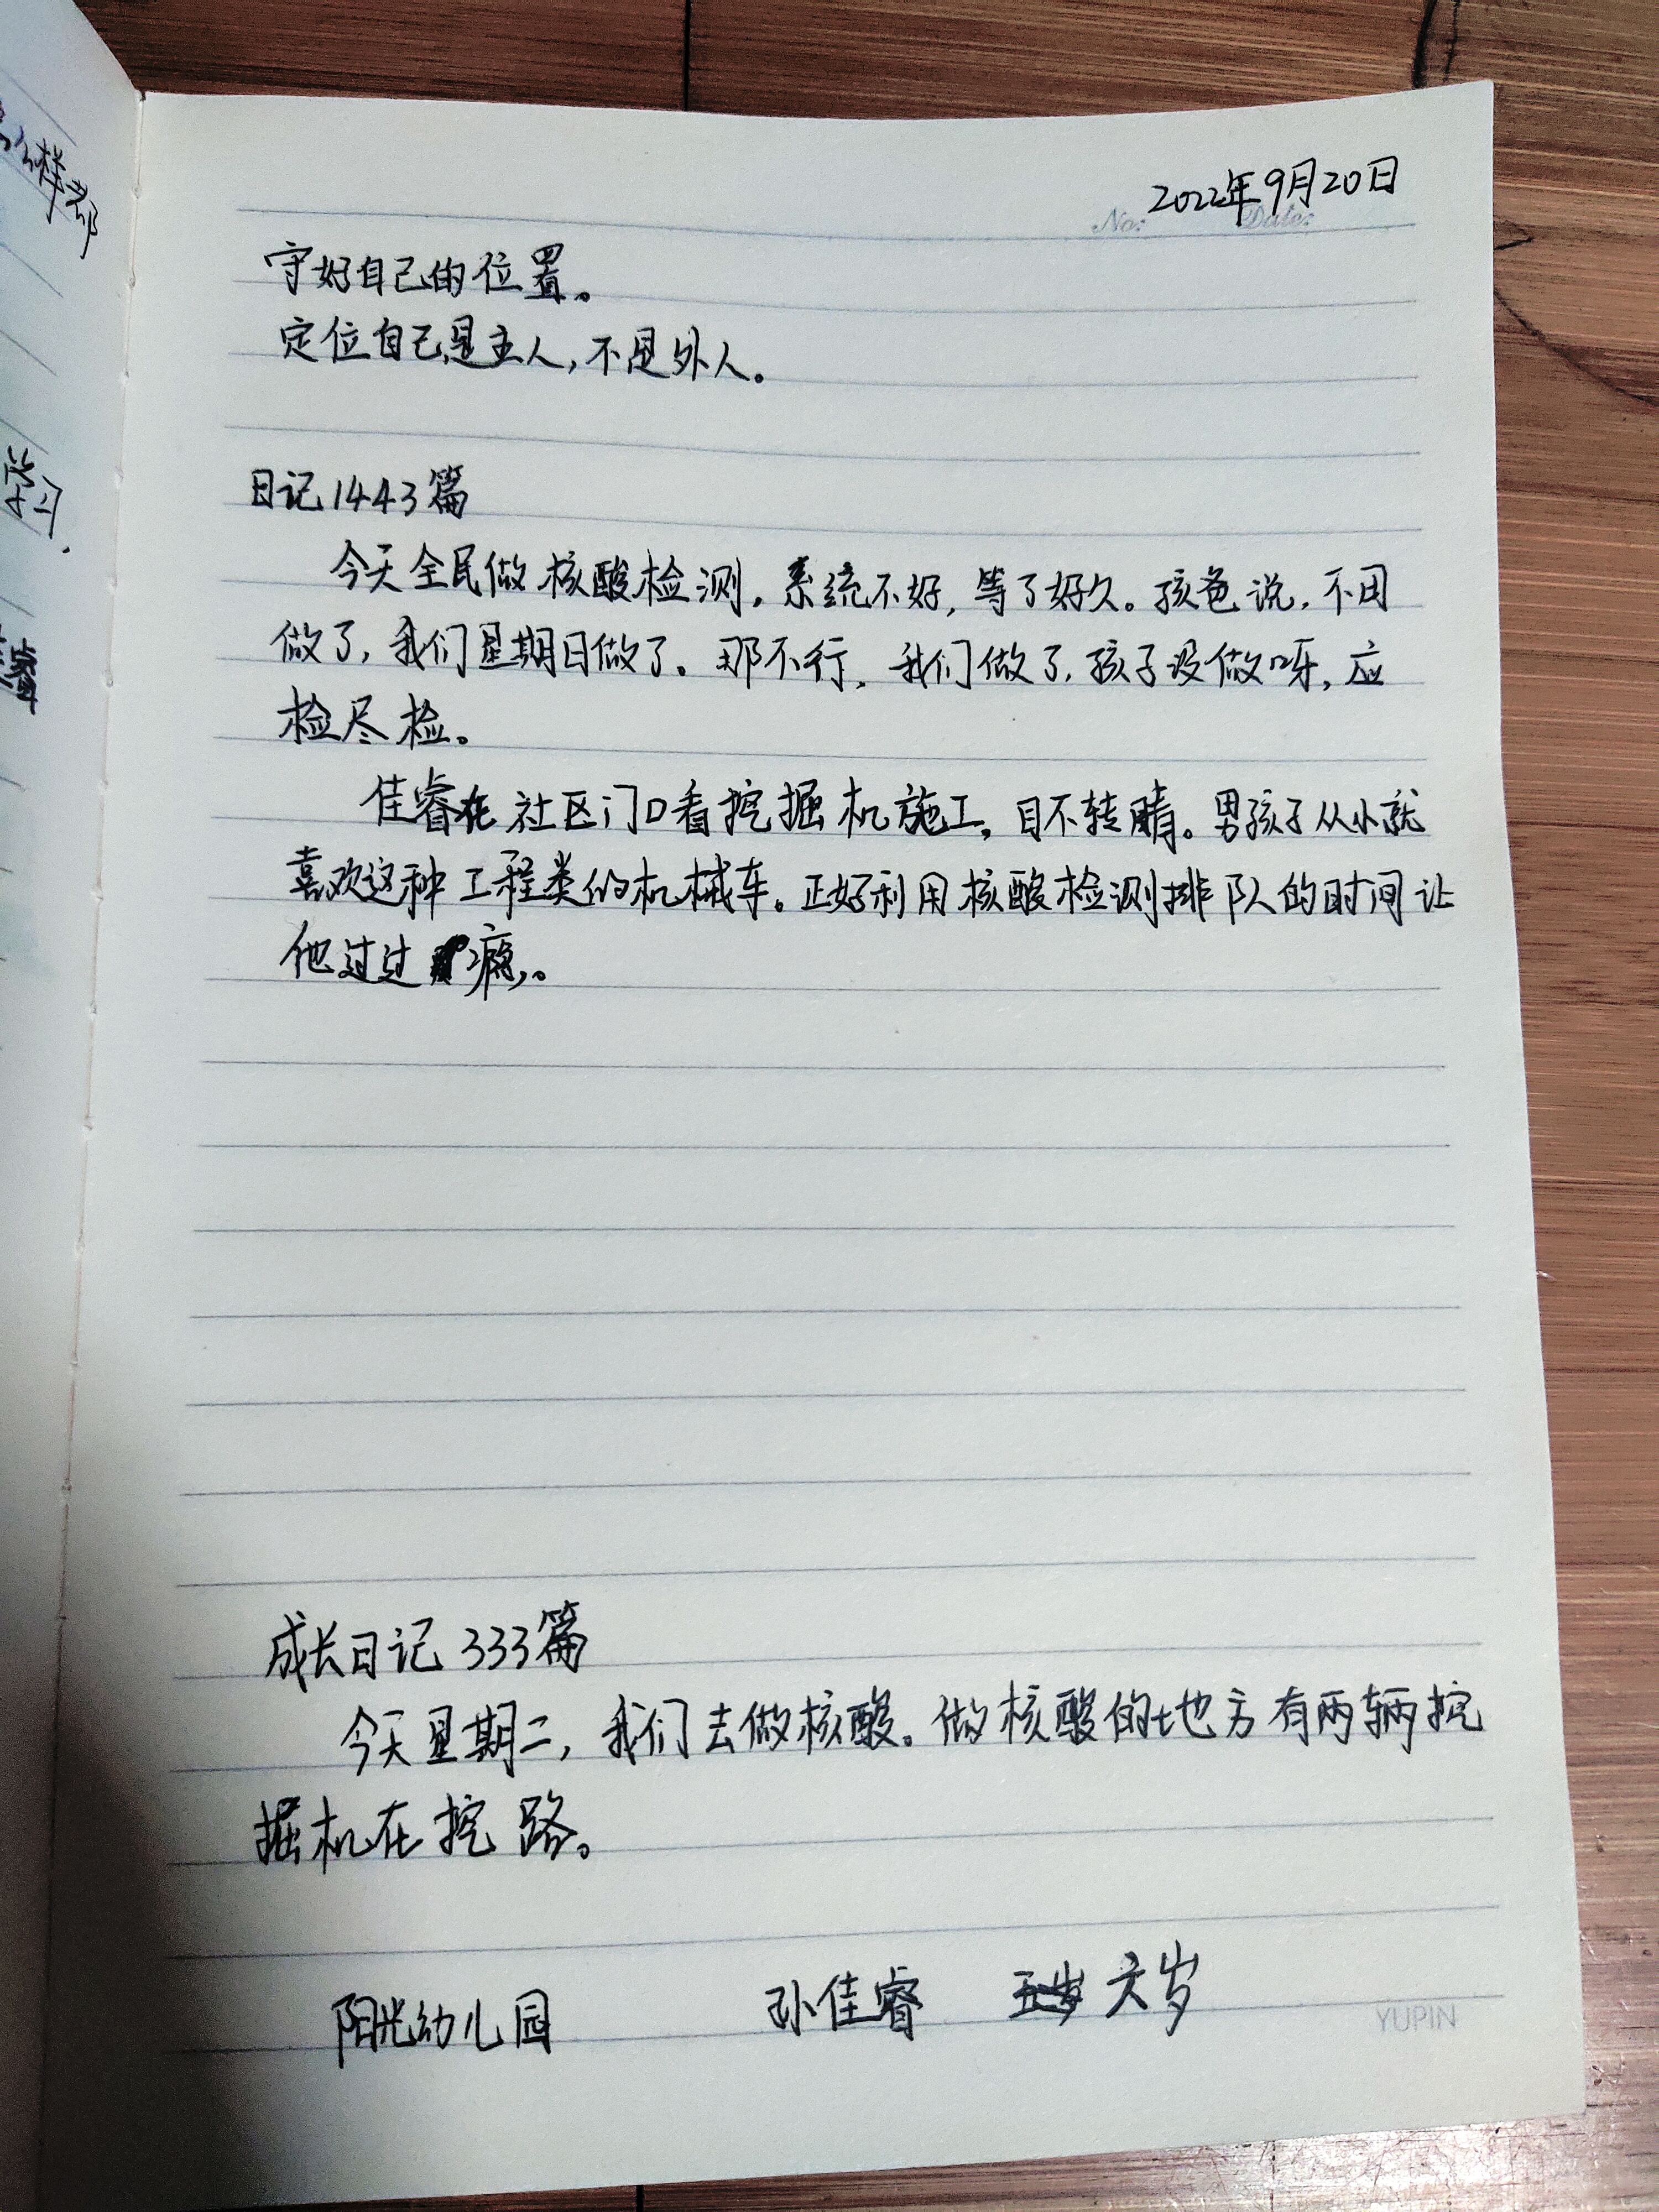 2022年9月20日
No: Date:
守好自己的位置。
定位自己是主人,不是外人。
日记1443篇
今天全民做核酸检测,系统不好,等了好久。孩爸说,不用
做了,我们星期日做了。那不行,我们做了,孩子没做呀,应
检尽检。
佳睿在社区门口看挖掘机施工,目不转睛。男孩子从小就
喜欢这种工程类的机械车。正好利用核酸检测排队的时间让
他过过瘾。
成长日记333篇
今天星期二,我们去做核酸。做核酸的地方有两辆挖
掘机在挖路。
阳光幼儿园 孙佳睿 五岁 六岁
YUPIN
学习.